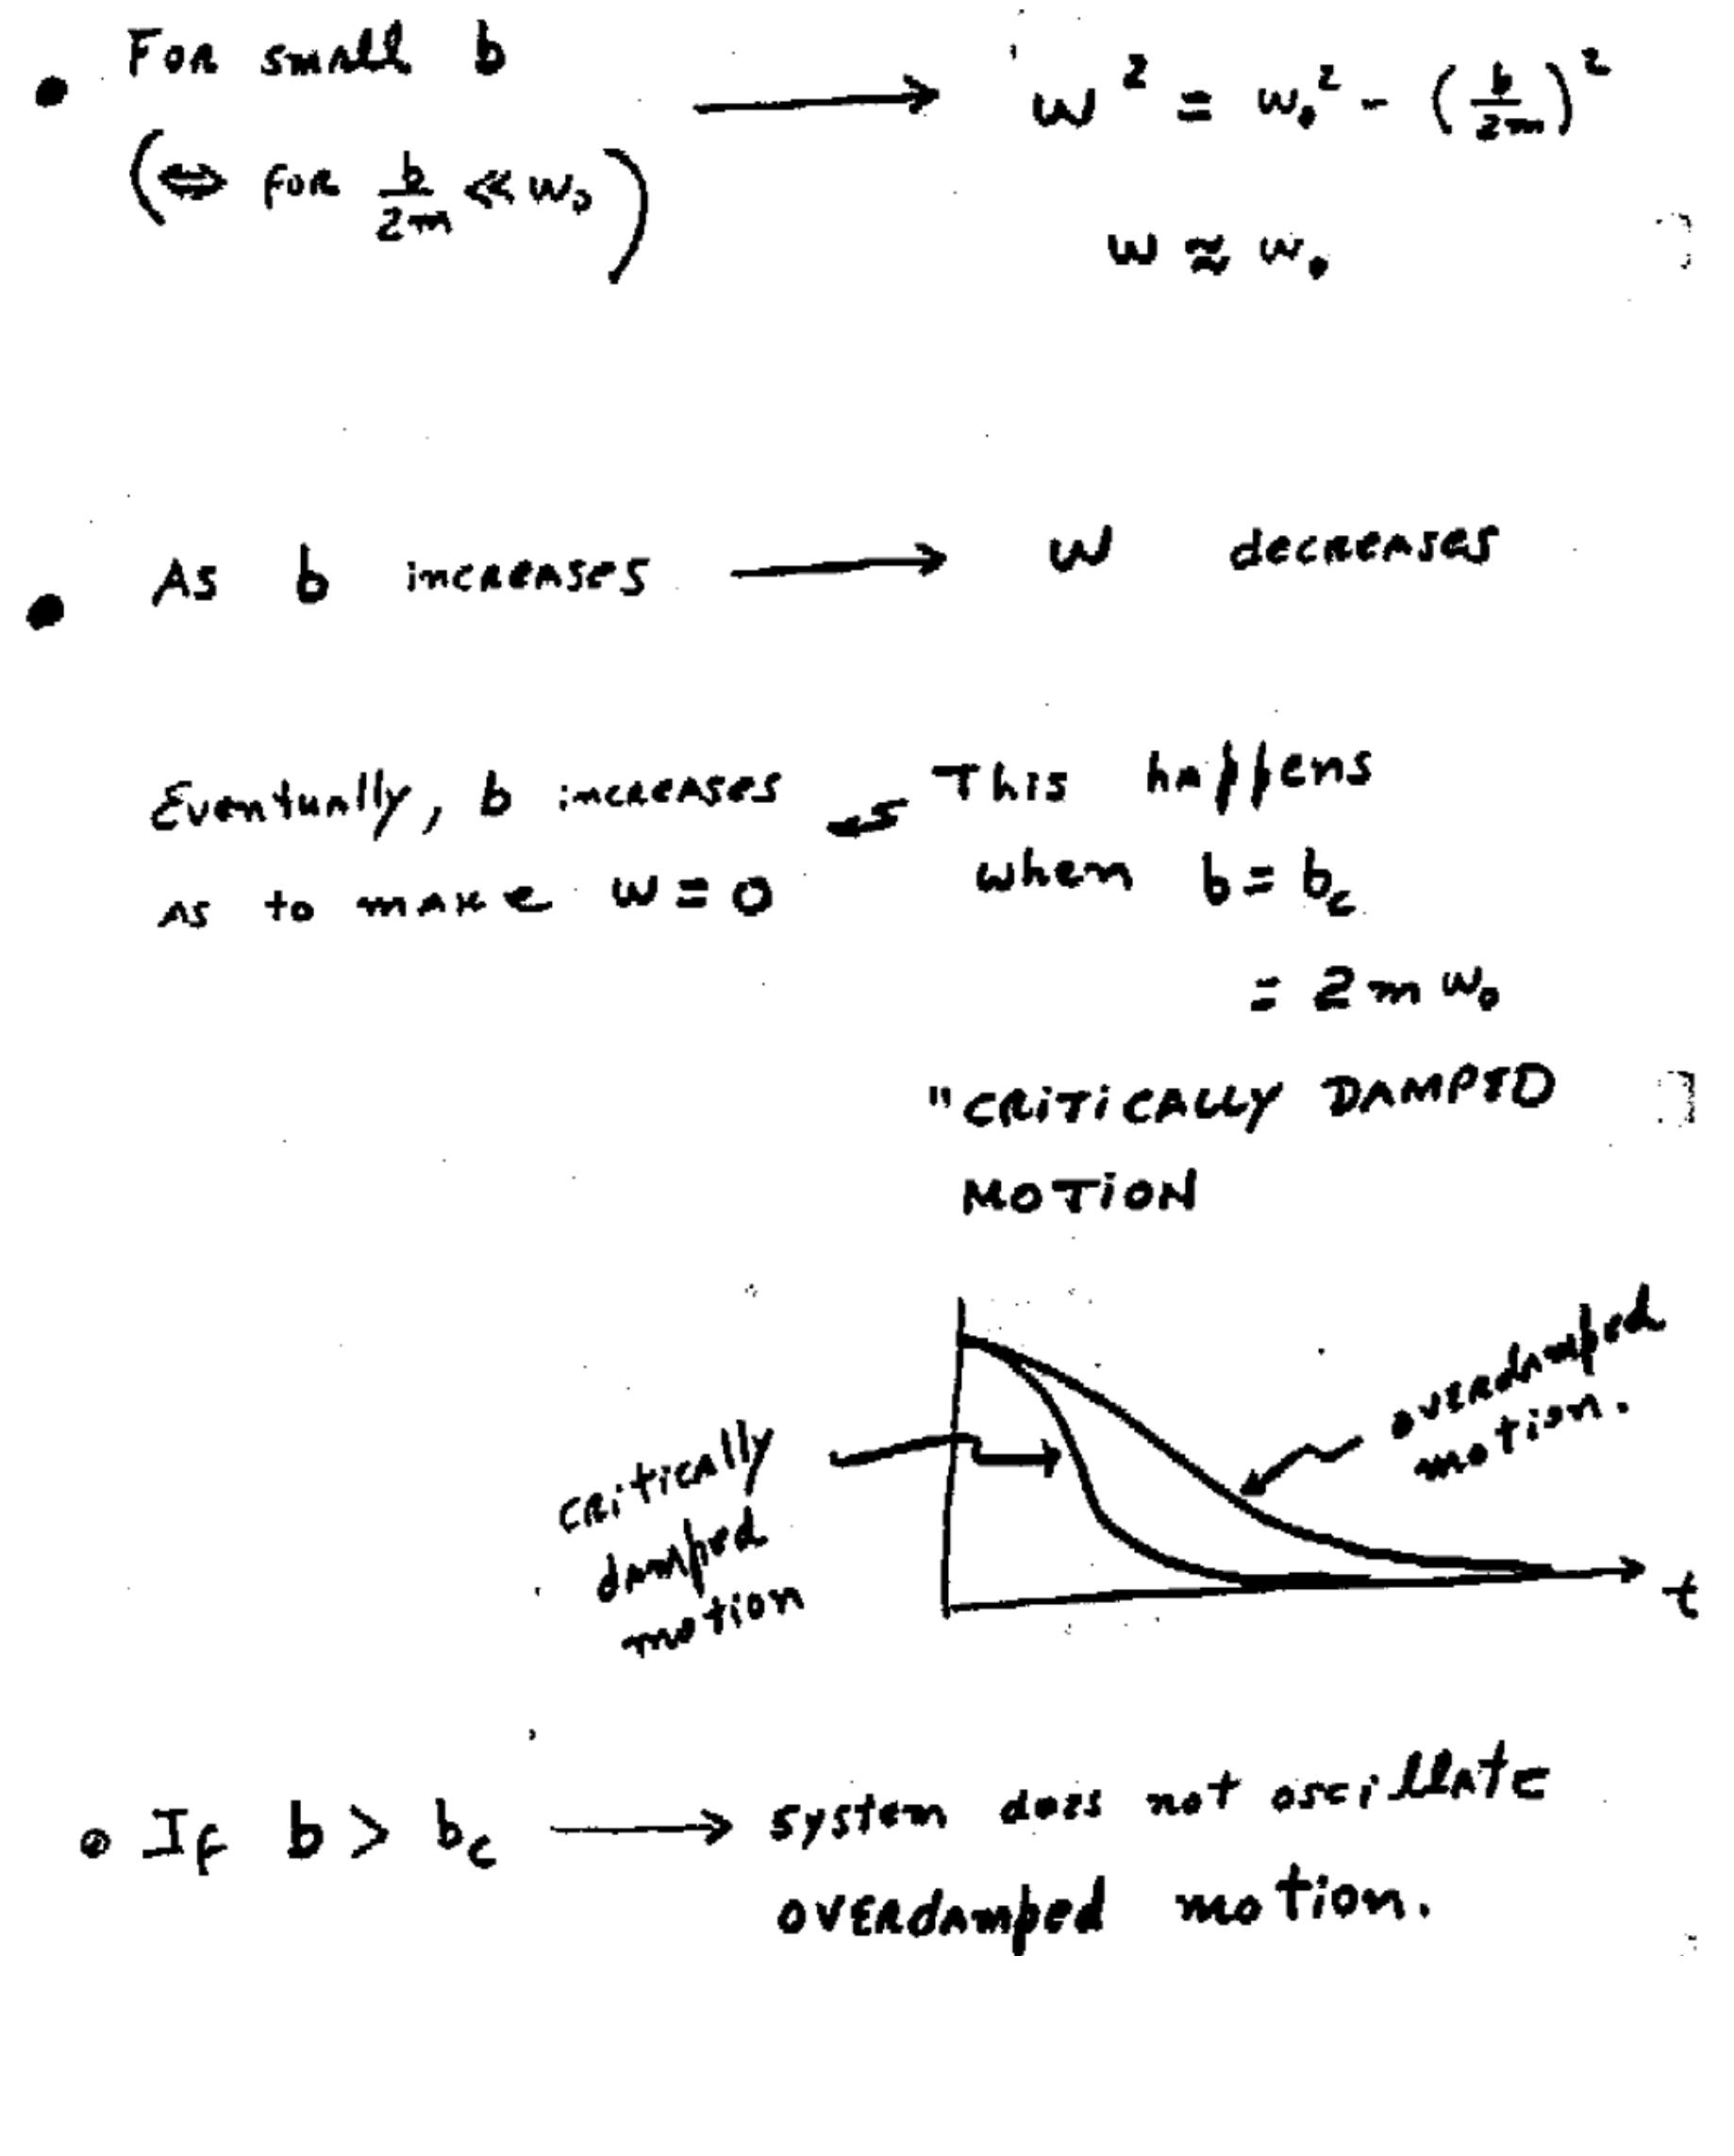 • For small b ⟶ w² = w₀² - (b/2m)²
(⇔ for b/2m ≪ w₀)
w ≈ w₀
• As b increases ⟶ w decreases
Eventually, b increases
as to make w = 0
This happens
when b = b_c
= 2m w₀
"CRITICALLY DAMPED
MOTION
critically
damped
motion
overdamped
motion.
t
• If b > b_c ⟶ system does not oscillate
overdamped motion.